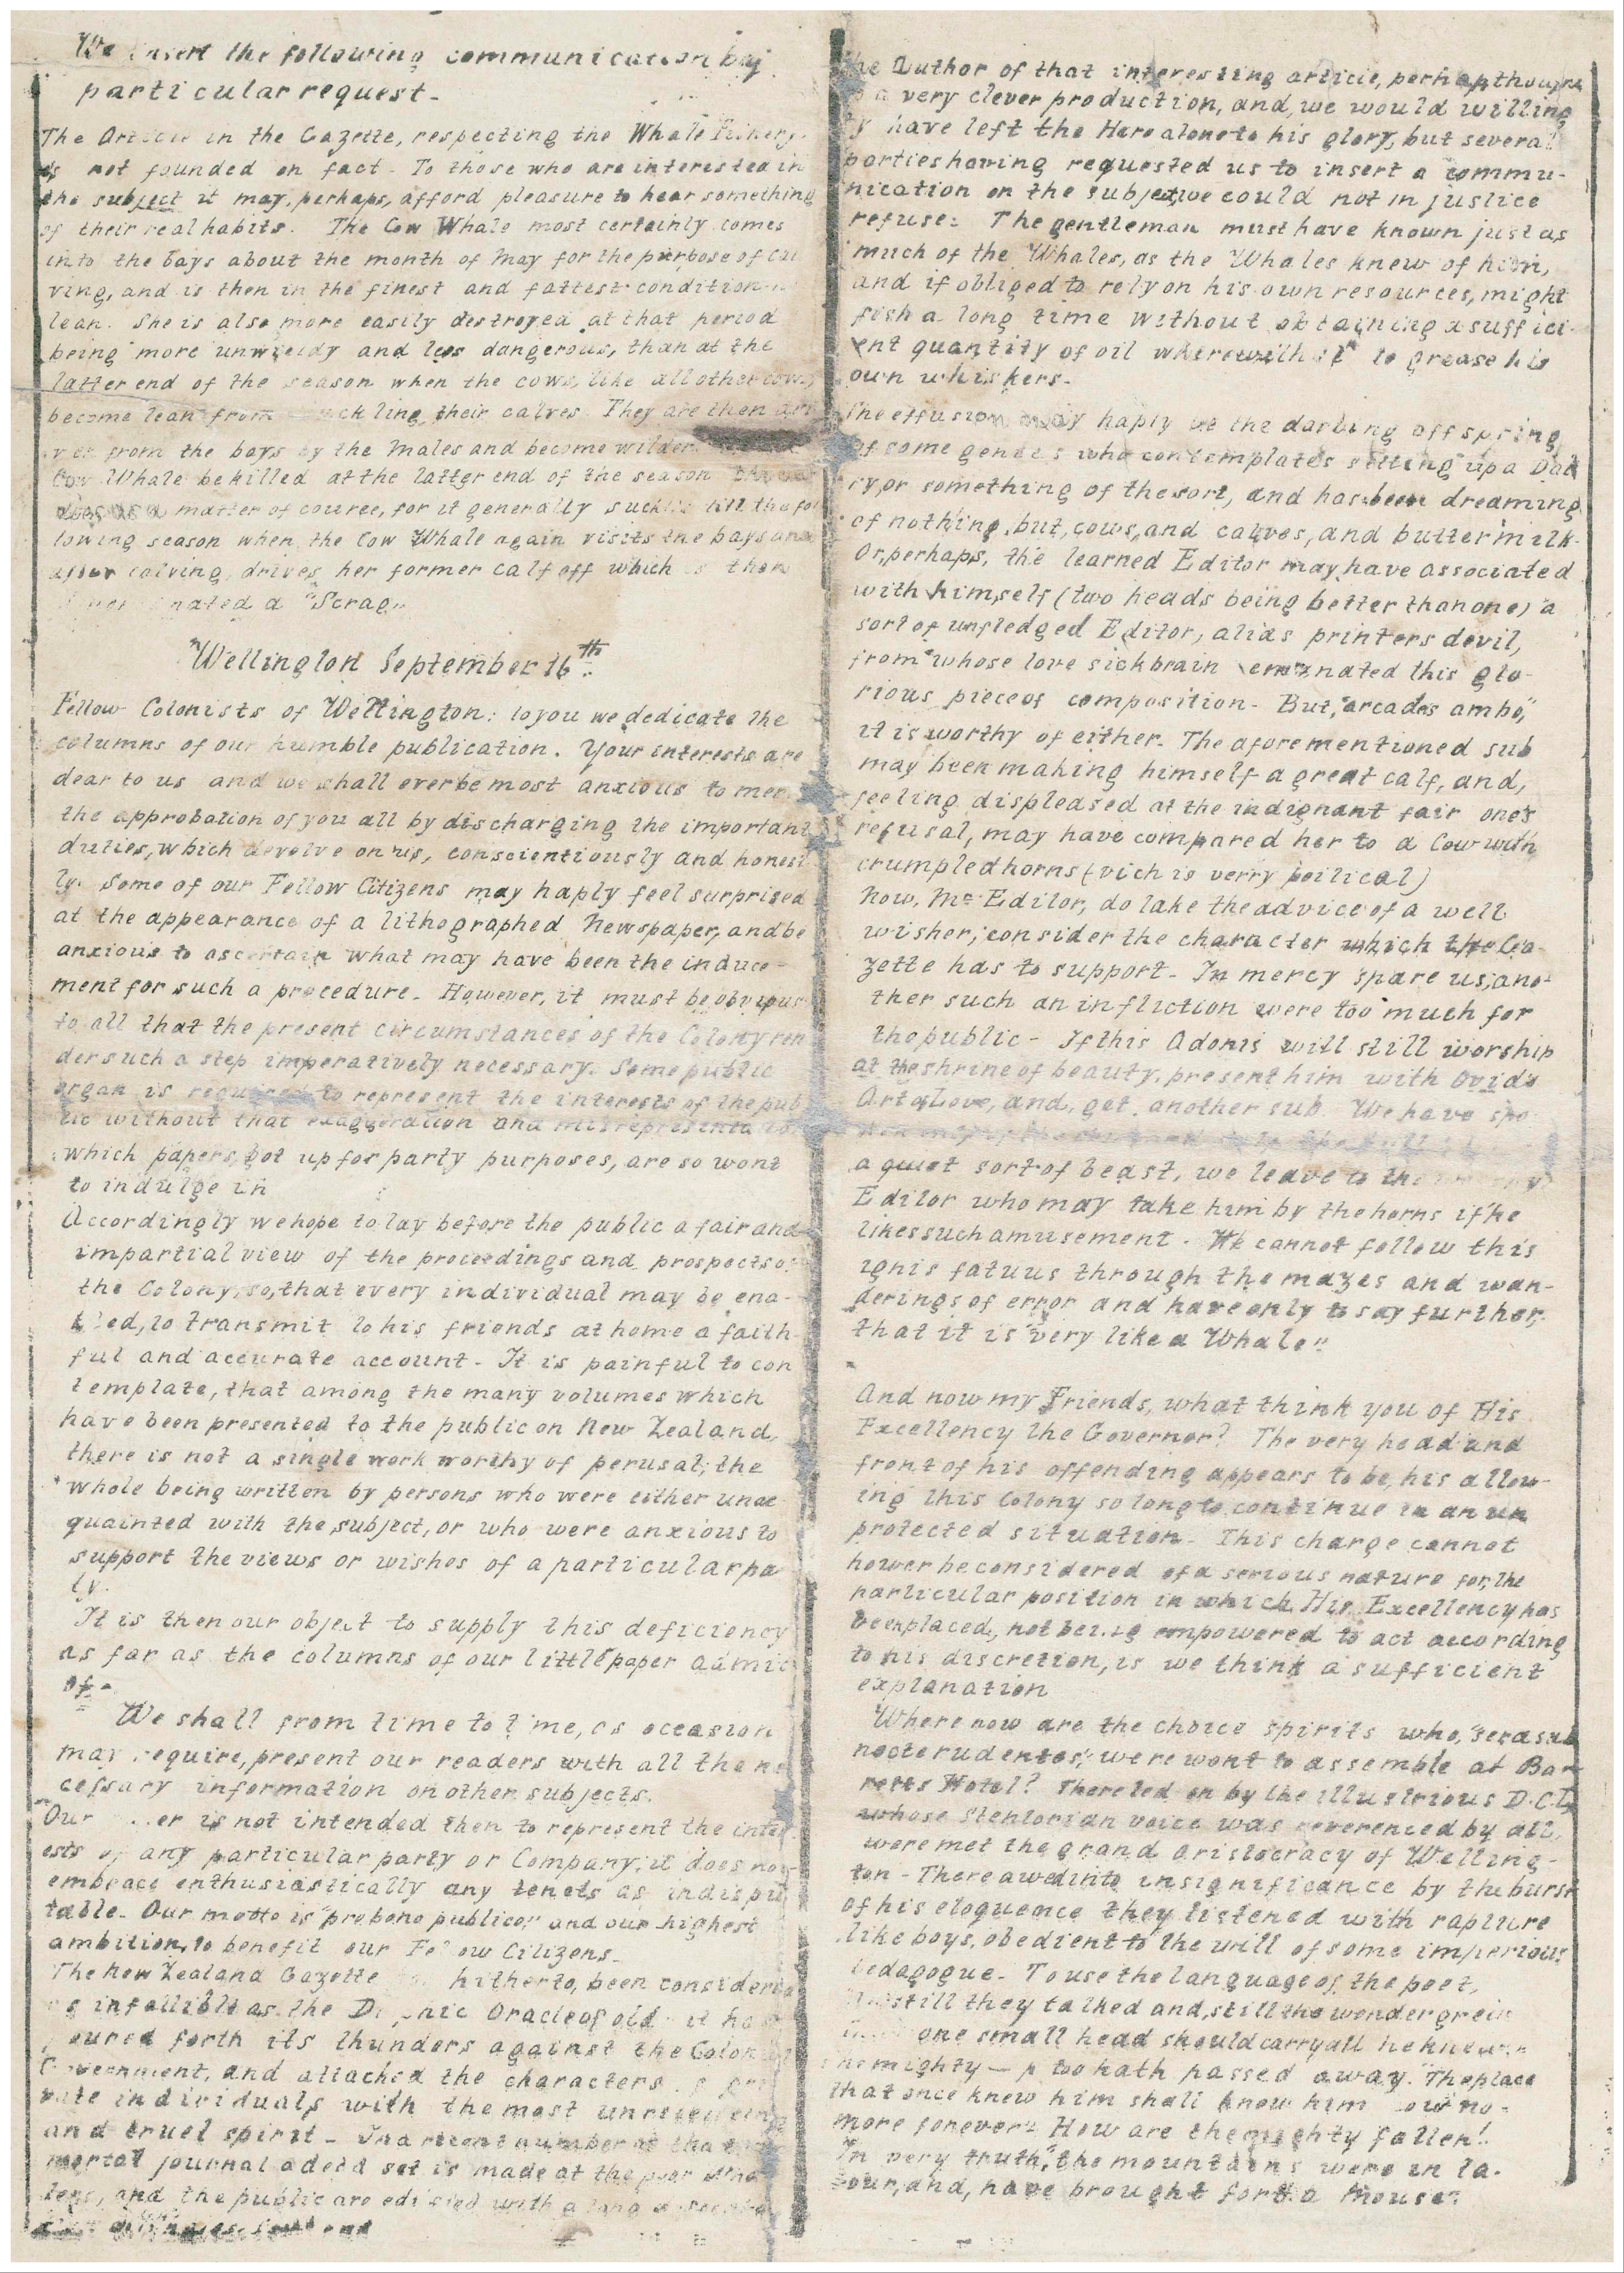 We insert the following communication by
particular request-
The Article in the Gazette, respecting the Whale Fishery.
is not founded on fact - To those who are interested in
the subject it may, perhaps, afford pleasure to hear something
of their real habits. The Cow Whale most certainly comes
into the bays about the month of May for the purpose of cal
ving, and is then in the finest and fattest condition
lean. She is also more easily destroyed at that period
being more unwieldy and less dangerous, than at the
latter end of the season when the cows, like all other cows,
become lean from suckling their calves. They are then
from the bays by the males and become wilder
Cow Whale be killed at the latter end of the season
does as a matter of course, for it generally sucks till the fol
lowing season when the Cow Whale again visits the bays and
after calving, drives her former calf off which is then
nated a "Scrag"
Wellington September 16th.
Fellow Colonists of Wellington: to you we dedicate the
columns of our humble publication. Your interests are
dear to us and we shall ever be most anxious to mer
the approbation of you all by discharging the important
duties, which devolve on us, conscientiously and honest
ly. Some of our Fellow Citizens may haply feel surprised
at the appearance of a lithographed Newspaper, and be
anxious to ascertain what may have been the induce-
ment for such a procedure. However, it must be obvious
to all that the present circumstances of the Colony ren
der such a step imperatively necessary. Some public
organ is required to represent the interests of the pub
lic without that exaggeration and misrepresentation
which papers, got up for party purposes, are so wont
to indulge in
Accordingly we hope to lay before the public a fair and
impartial view of the proceedings and prospects of
the Colony, so, that every individual may be ena-
bled, to transmit to his friends at home a faith-
ful and accurate account - It is painful to con
template, that among the many volumes which
have been presented to the public on New Zealand,
there is not a single work worthy of perusal; the
whole being written by persons who were either unac
quainted with the subject, or who were anxious to
support the views or wishes of a particular par
ty.
It is then our object to supply this deficiency
as far as the columns of our little paper admit
of-
We shall from time to time, as occasion
may require, present our readers with all the ne
cessary information on other subjects.
Our er is not intended then to represent the inter
ests of any particular party or Company; it does not
embrace enthusiastically any tenets as indispu
table. Our motto is "pro bono publico," and our highest
ambition, to benefit our Fellow Citizens-
The New Zealand Gazette hitherto, been considered
as infallible as the Delphic Oracle of old it has
poured forth its thunders against the Colonial
Government, and attached the characters of pri
vate individuals with the most unrelenting
and cruel spirit - In a recent number of that
mortal journal a dead set is made at the poor wha
lers, and the public are edified with a long
and
The Author of that interesting article, perhaps thought
a very clever production, and, we would willing
ly have left the Hero alone to his glory, but several
parties having requested us to insert a commu-
nication on the subject, we could not in justice
refuse: The gentleman must have known just as
much of the Whales, as the Whales knew of him,
and if obliged to rely on his own resources, might
fish a long time without obtaining a suffici-
ent quantity of oil wherewith to grease his
own whiskers-
The effusion may haply be the darling offspring
of some genius who contemplates setting up a Dai
ry, or something of the sort, and has been dreaming
of nothing, but, cows, and calves, and buttermilk-
Or, perhaps, the learned Editor may have associated
with himself (two heads being better than one) a
sort of unfledged Editor, alias printers devil,
from whose love sick brain emanated this glo-
rious piece of composition - But, "arcades ambo,"
it is worthy of either. The aforementioned sub
may been making himself a great calf, and,
feeling displeased at the indignant fair one's
refusal, may have compared her to a Cow with
crumpled horns (vich is verry poitical)
Now, Mr. Editor, do take the advice of a well
wisher; consider the character which the Ga-
zette has to support - In mercy spare us; ano-
ther such an infliction were too much for
the public - If this Adonis will still worship
at the shrine of beauty, present him with Ovid's
Art of Love, and, get, another sub. We have spo
a quiet sort of beast, we leave to the
Editor who may take him by the horns if he
likes such amusement. We cannot follow this
ignis fatuus through the mazes and wan-
derings of error and have only to say further,
that it is "very like a Whale"
And now my Friends, what think you of His
Excellency the Governor? The very head and
front of his offending appears to be, his allow-
ing this Colony so long to continue in an un
protected situation. This charge cannot
hower be considered of a serious nature for, the
particular position in which His Excellency has
been placed, not being empowered to act according
to his discretion, is we think a sufficient
explanation
Where now are the choice spirits who, "sera sub
nocte rudentes," were wont to assemble at Bar
retts Hotel? There led on by the illustrious D.C.L
whose Stentorian voice was reverenced by all,
were met the grand aristocracy of Welling-
ton - There awed into insignificance by the burst
of his eloquence they listened with rapture
like boys, obedient to the will of some imperious
pedagogue - To use the language of the poet,
still they talked and, still the wonder grew
one small head should carry all he knew"
he mighty — p too hath passed away. "The place
that once knew him shall know him now no-
more forever" How are the mighty fallen!
In very truth, "the mountains were in la-
bour, and, have brought forth a Mouse"